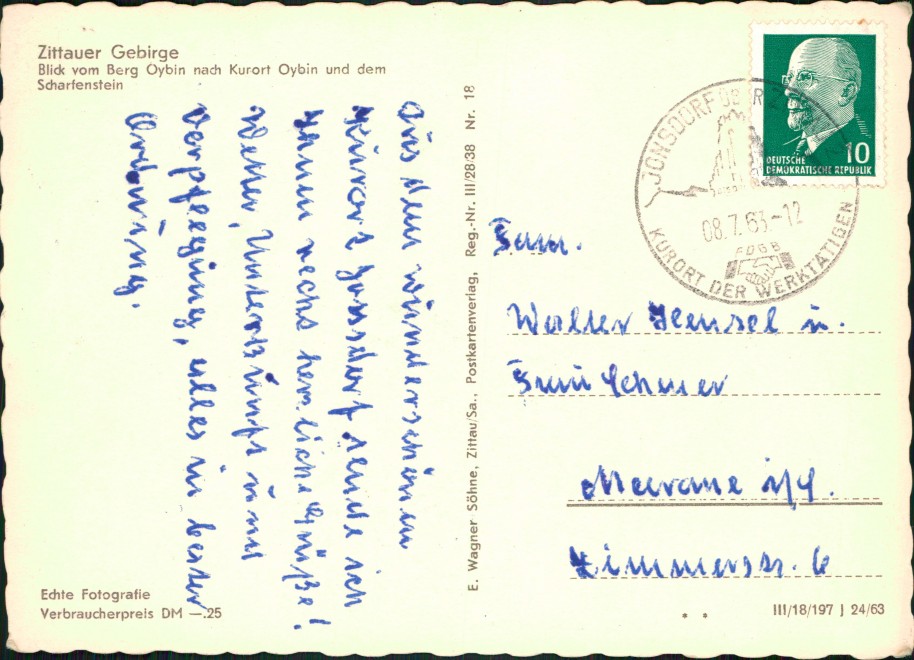 Zittauer Gebirge
Blick vom Berg Oybin nach Kurort Oybin und dem
Scharfenstein
Aus dem wunderschönen
Kurort Jonsdorf sende ich
Ihnen rechs herzliche Grüße!
Wetter, Unterkunft und
Verpflegung, alles in bester
Ordnung.
Echte Fotografie
Verbraucherpreis DM —.25
E. Wagner Söhne, Zittau/Sa., Postkartenverlag, Reg.-Nr. III/28/38 Nr. 18
JONSDORF ÜBER
08.7.63-12
FDGB
KURORT DER WERKTÄTIGEN
DEUTSCHE
DEMOKRATISCHE REPUBLIK
10
Fam.
Walter Hensel u.
Frau
Meerane i/S.
Zimmerstr. 6
III/18/197 J 24/63